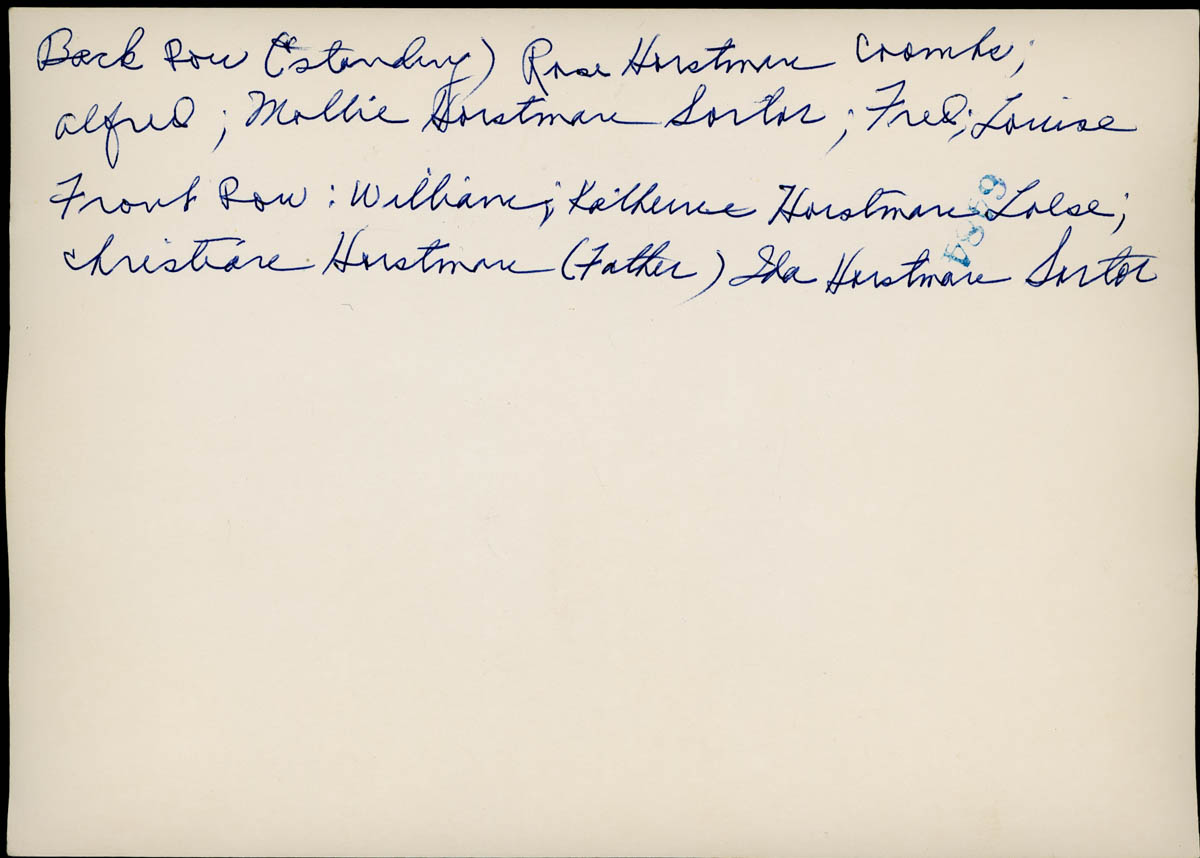 Back Row (standing) Rose Horstman Coombs;
Alfred; Mollie Horstman Sortor; Fred; Louise
Front Row: William; Katherine Horstman Lolse;
Christian Horstman (Father) Ida Horstman Sortor